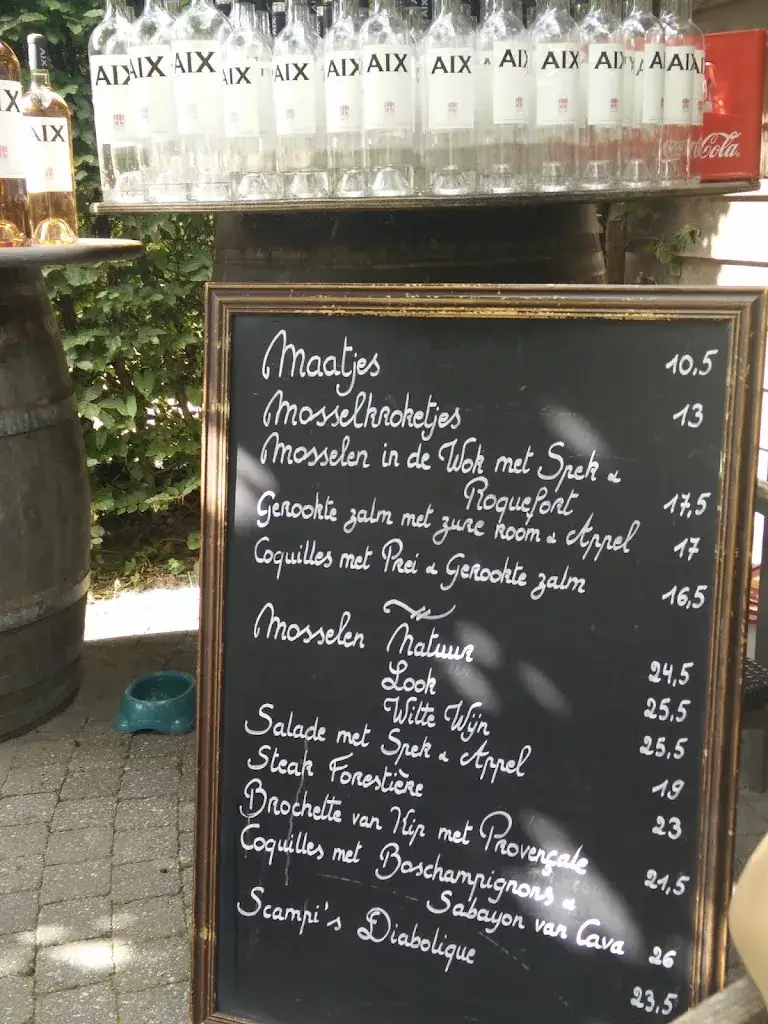 AIX AIX AIX AIX AIX AIX AIX AIX AIX AIX AIX AIX
AIX
Coca-Cola
Maatjes 10,5
Mosselkroketjes 13
Mosselen in de Wok met Spek &
Roquefort 17,5
Gerookte zalm met zure room & Appel 17
Coquilles met Prei & Gerookte zalm 16,5
Mosselen Natuur 24,5
Look 25,5
Witte Wijn 25,5
Salade met Spek & Appel 19
Steak Forestière 23
Brochette van Kip met Provençale 21,5
Coquilles met Boschampignons &
Sabayon van Cava 26
Scampi's Diabolique 23,5